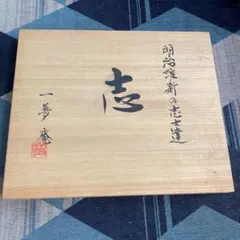 明治維新の志士達
志
一夢庵